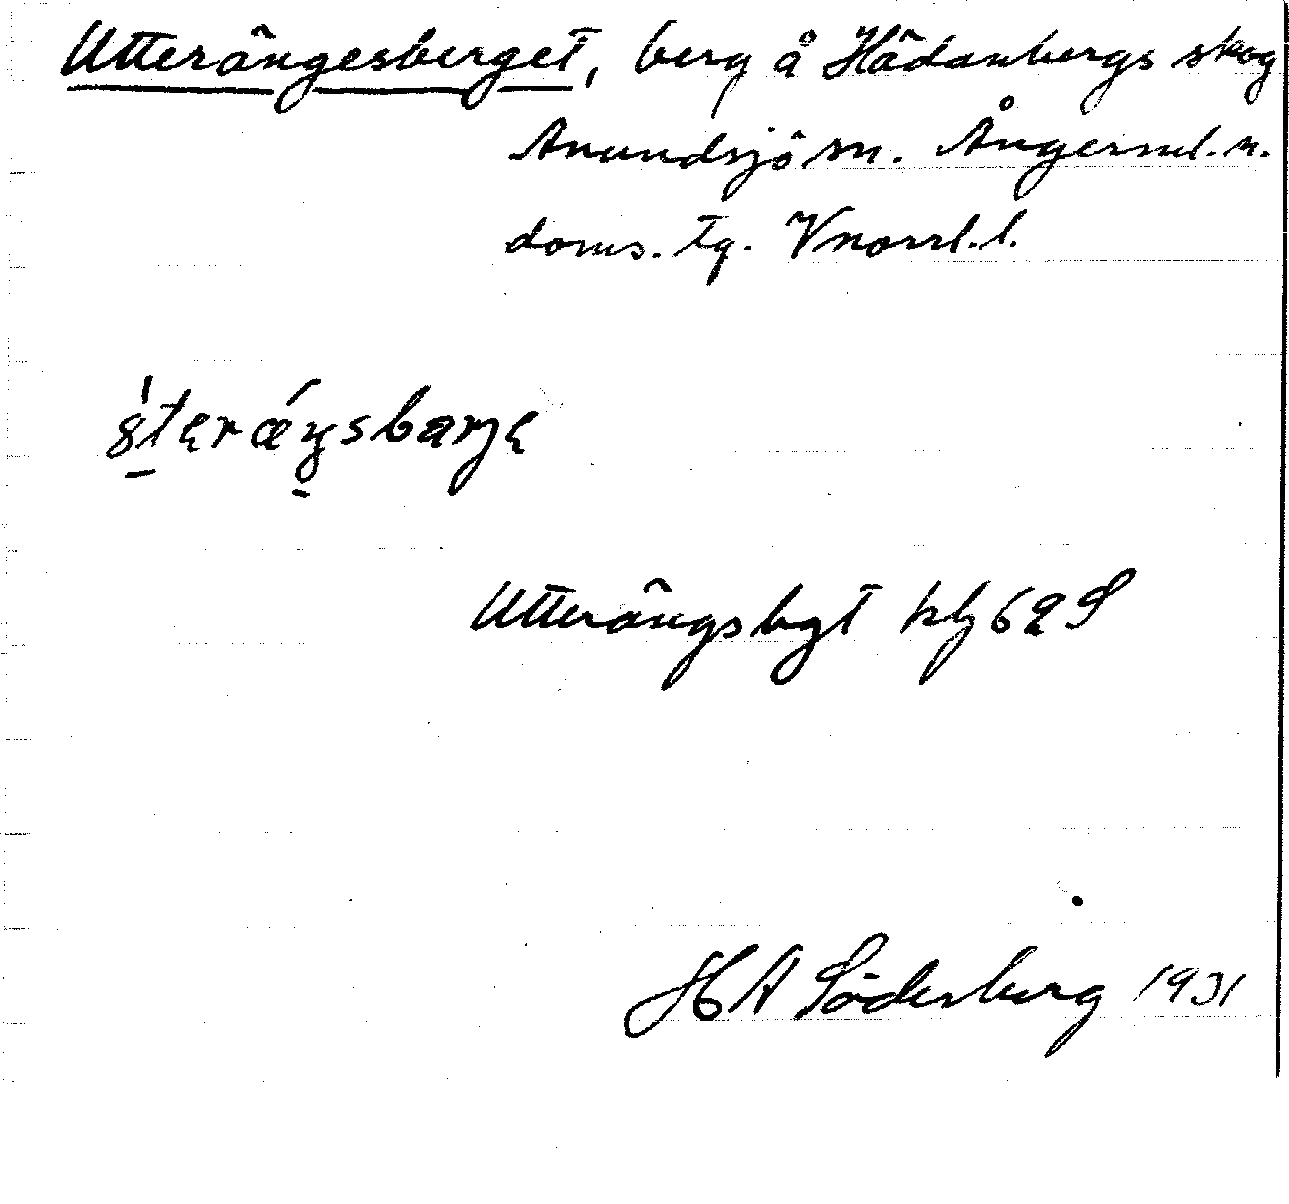 Utterängesberget, berg å Hädanbergs skog
Anundsjö sn. Ångerml. n.
doms. tg. Vnorrl. l.
Utterängsbgt kbl 62 S
H A Söderberg 1931